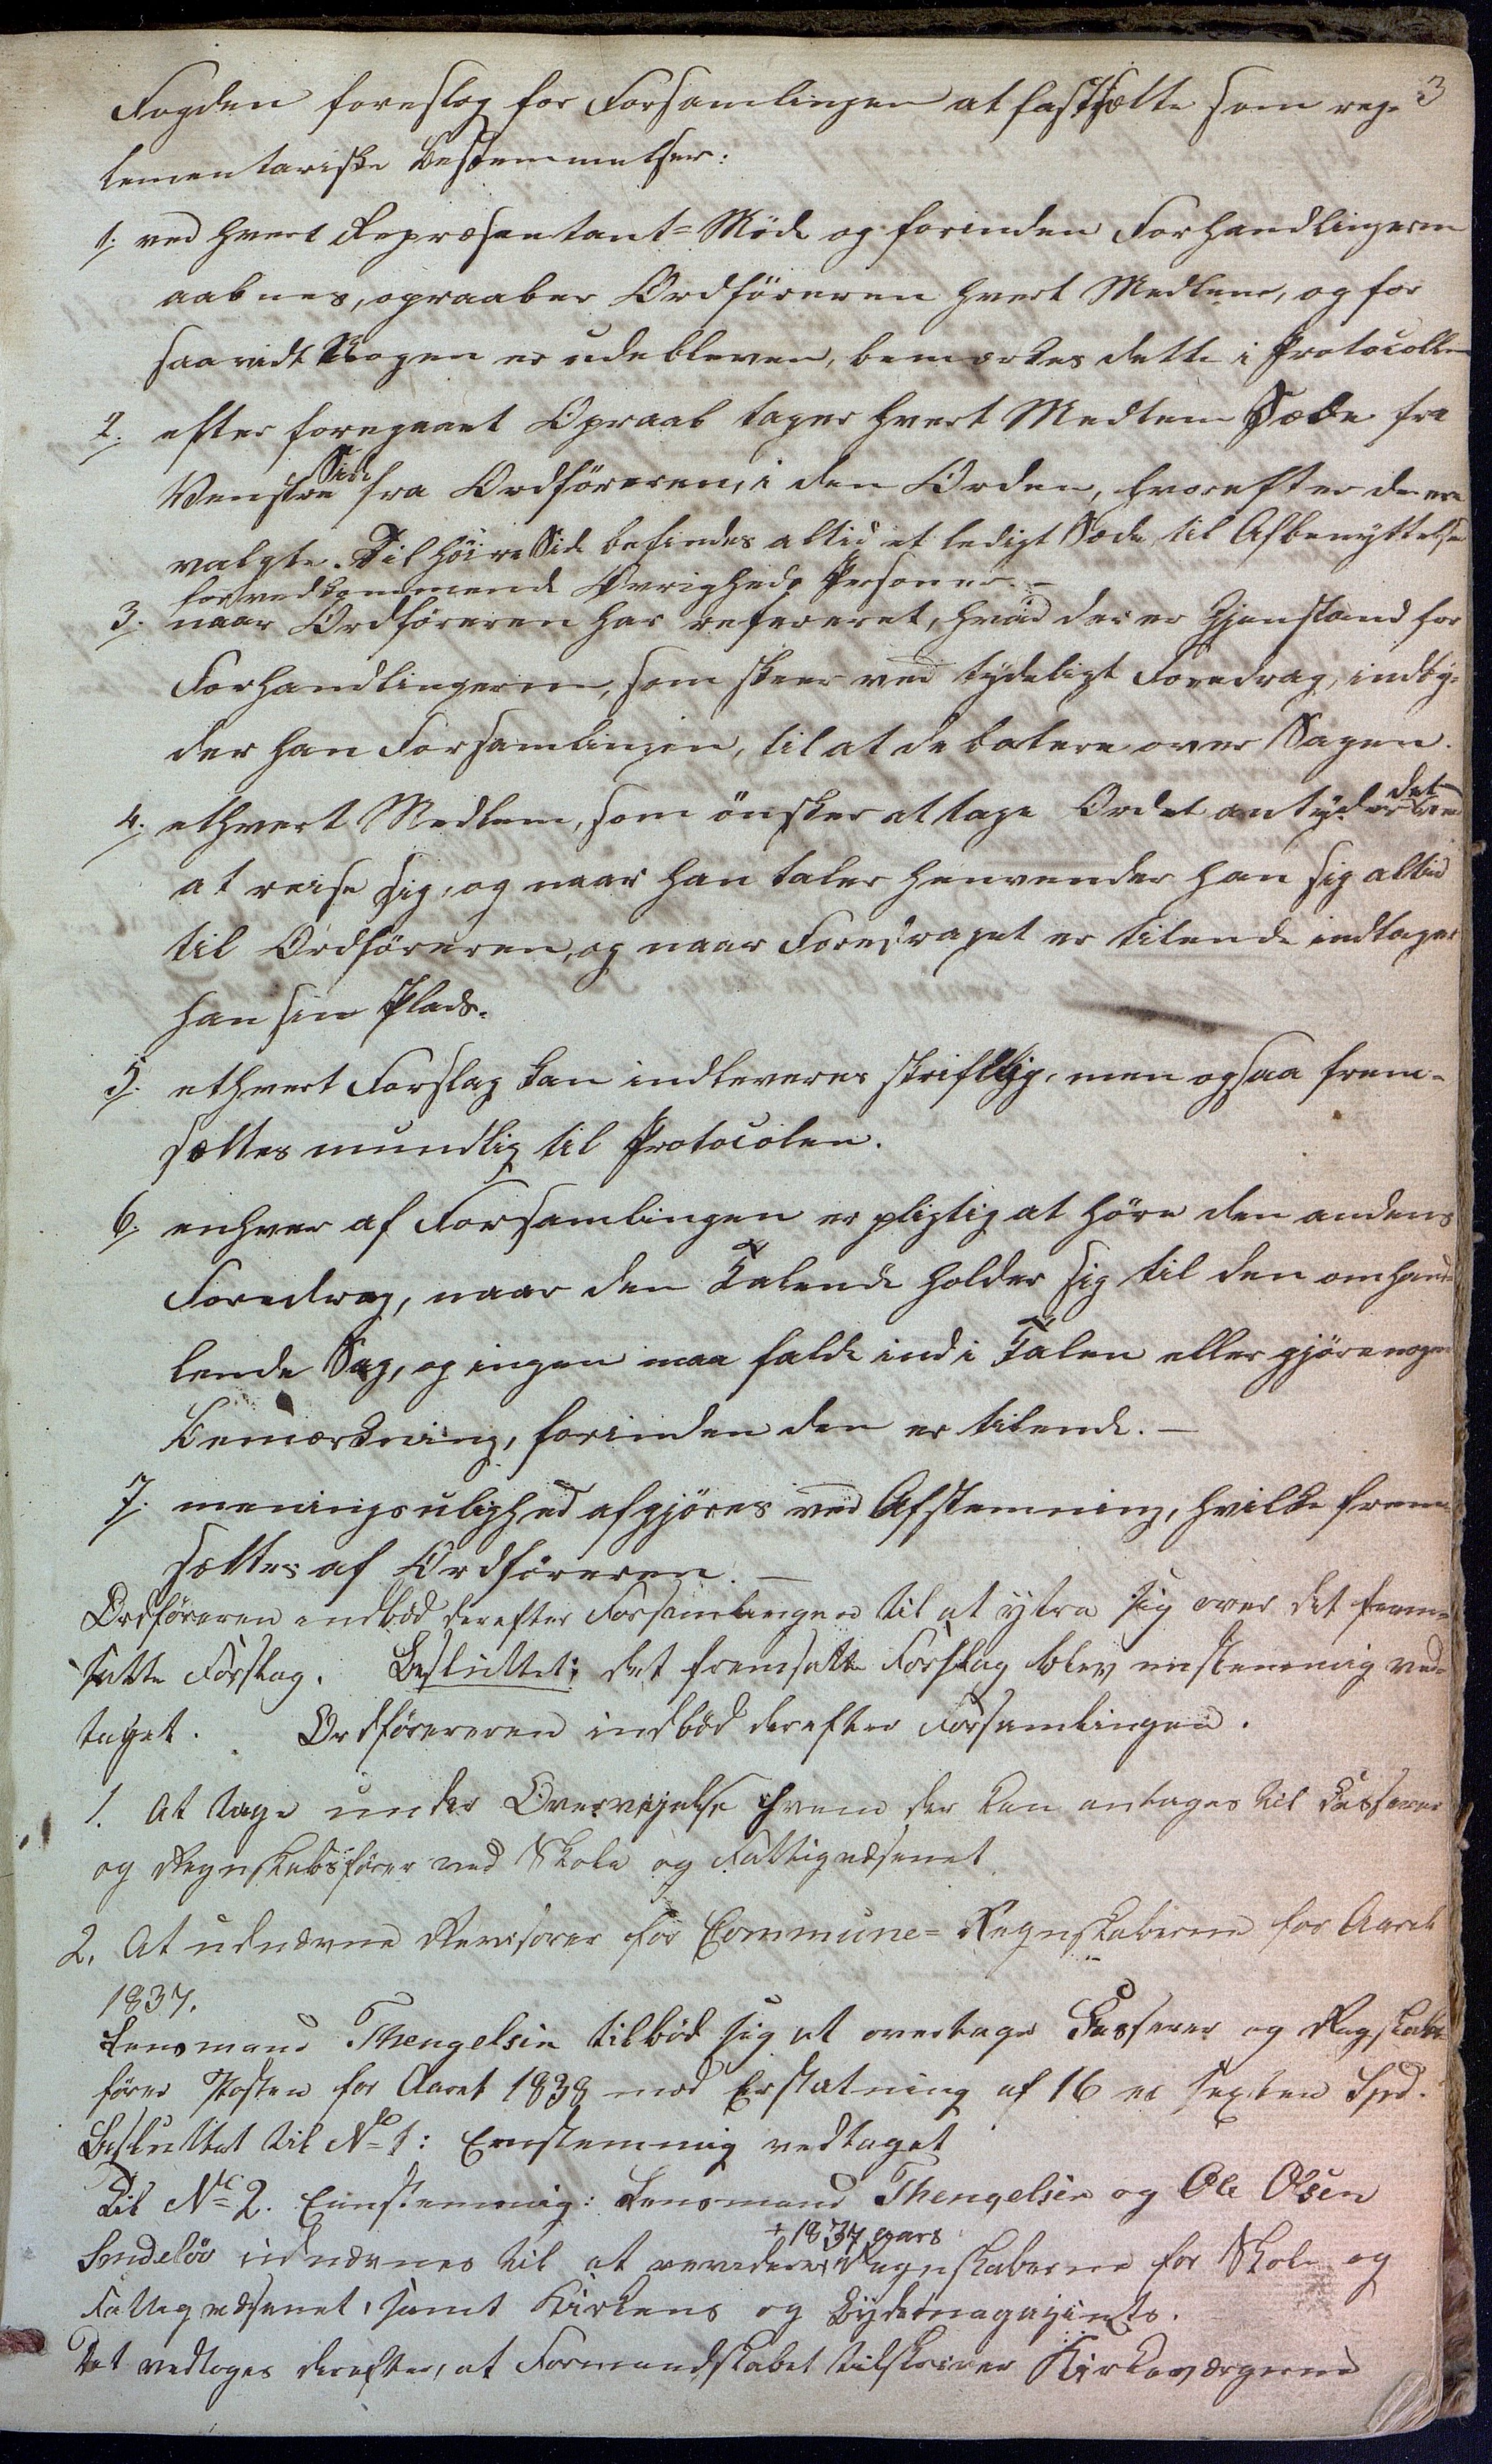 3
Fogden foreslog for Forsamlingen at fastsætte som reg-
lementariske Bestemmelser:
1. ved hvert Repræsentant-Möde og forinden Forhandlingerne
aabnes, opraaber Ordföreren hvert Medlem, og for
saavidt Nogen er udebleven, bemærkes dette i Protocollen
2. efter foregaaet Opraab tager hvert Medlem Sæde fra
Venstre Side fra Ordföreren, i den Orden, hvorefter de ere
valgte. Til höire Side befindes altid et ledigt Sæde til Afbenyttelse
for vedkommende Øvrigheds Personer. -
3. naar Ordföreren har refereret, hvad der er Gjenstand for
Forhandlingerne, som skeer ved tydeligt Foredrag, indby-
der han Forsamlingen, til at debatere over Sagen.
4. ethvert Medlem, som önsker at tage Ordet antyder det ved
at reise sig, og naar han taler henvender han sig altid
til Ordföreren, og naar Foredraget er tilende indtager
han sin Plads.
5. ethvert Forslag kan indleveres skriftlig, men ogsaa frem-
sættes mundlig til Protocolen.
6. enhver af Forsamlingen er pligtig at höre den andens
Foredrag, naar den Talende holder sig til den omhand-
lende Sag, og ingen maa falde ind i Talen eller gjöre nogen
Bemærkning, forinden den er tilende. -
7. meningsulighed afgjöres ved Afstemning, hvilke frem-
sættes af Ordföreren. -
Ordföreren indböd derefter Forsamlingen til at yttre sig over det frem-
satte Forslag. Besluttet: det fremsatte Forslag blev enstemmig ved-
taget. Ordföreren indböd derefter Forsamlingen.
1. At tage under Overveielse hvem der kan antages til Casserer
og Regnskabsförer ved Skole og Fattigvæsenet
2. At udnævne Revisorer for Commune-Regnskaberne for Aaret
1837.
Lensmand Thengelsen tilböd sig at overtage Casserer og Regnskabs
förer Posten for Aaret 1838 mod Erstatning af 16 er sexten Spd.
Besluttet til No 1: Enstemmig vedtaget
Til No 2. Eenstemmig: Lensmand Thengelsen og Ole Olsen
udnævnes til at revidere + 1837 aars Regnskaberne for Skole og
Fattigvæsenet, samt Kirkens og Bygdemagazinets.
Det vedtoges derefter, at Formandskabet tilskriver Kirkeværgerne